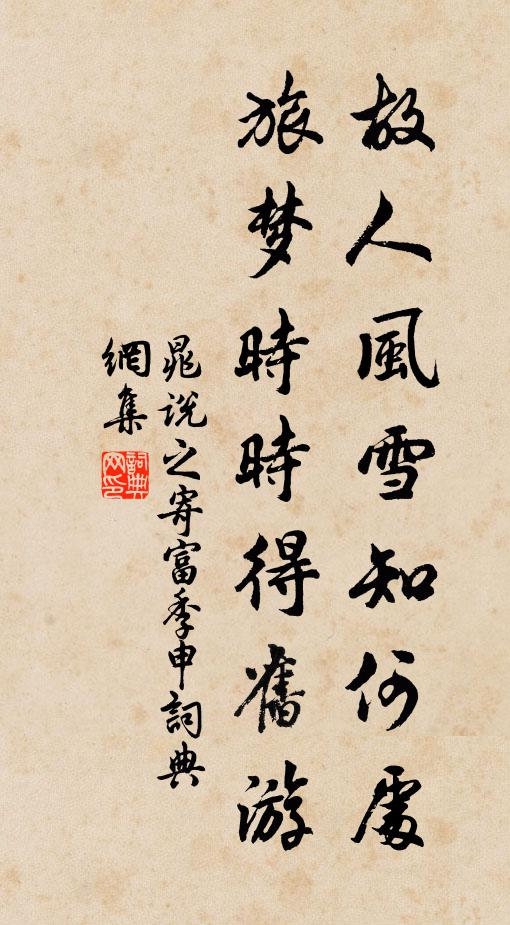 故人風雪知何處
旅梦時時得舊游
晁说之寄富季申詞典
網集
詞典網印